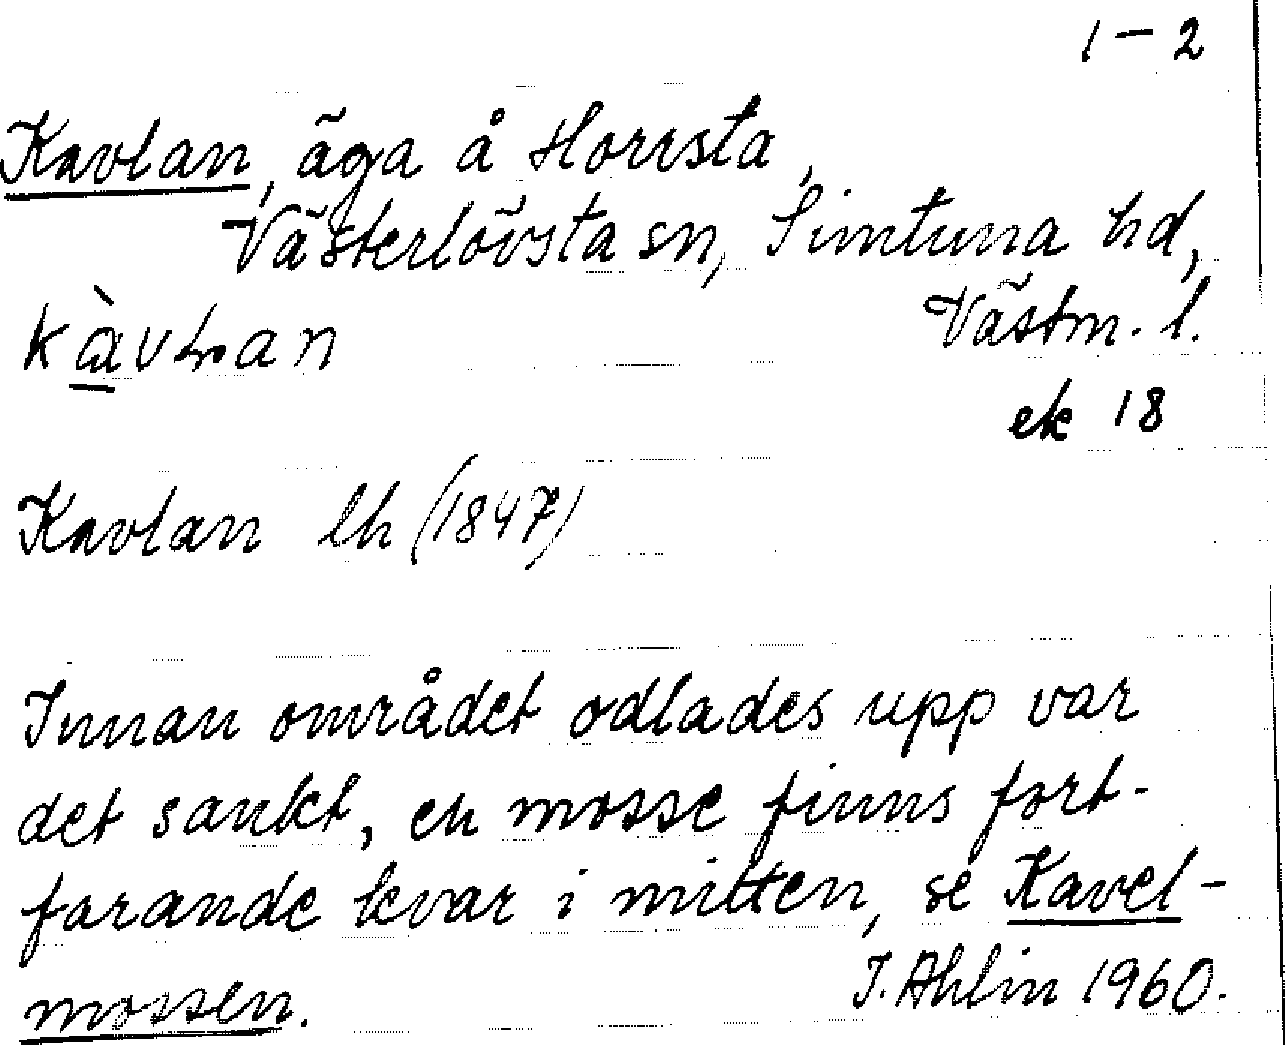 1-2
Kavlan, äga å Horrsta,
Västerlövsta sn, Simtuna hd,
Västm. l.
ek 18
Kavlan lh (1847)
Innan området odlades upp var
det sankt, en mosse finns fort-
farande kvar i mitten, se Kavel-
mossen.
I. Ahlin 1960.